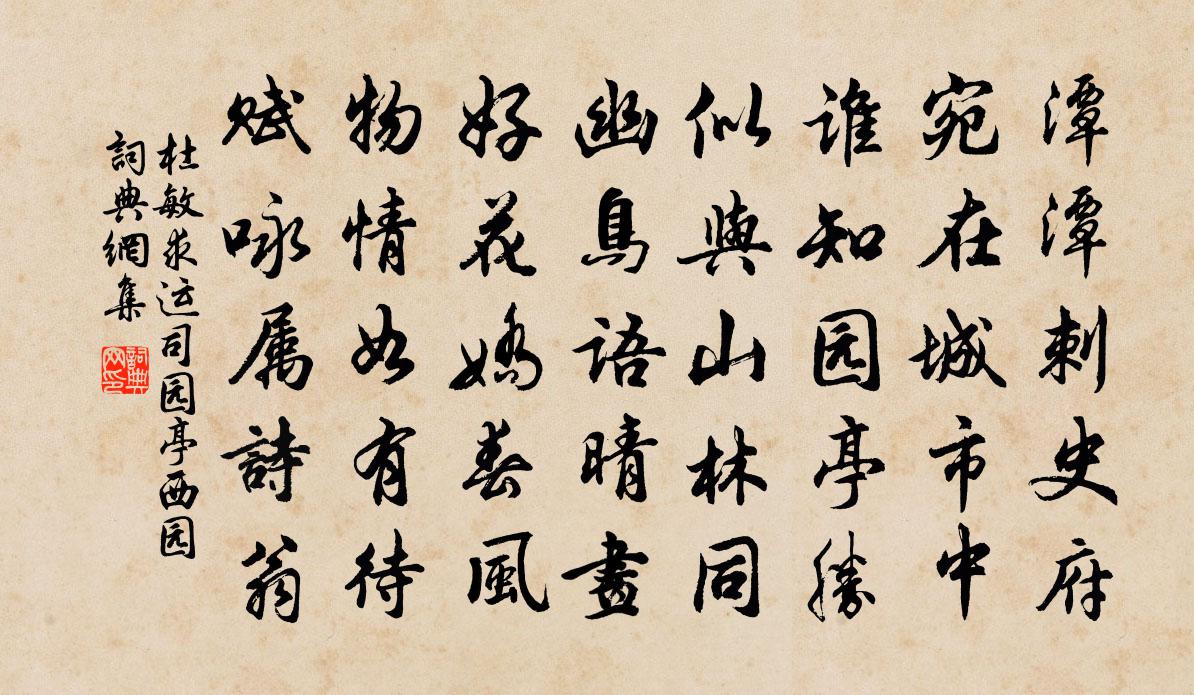 潭潭刺史府
宛在城市中
谁知园亭勝
似與山林同
幽鳥语晴晝
好花嬌春風
物情如有待
赋咏属詩翁
杜敏求运司园亭西园
詞典網集
詞典网印